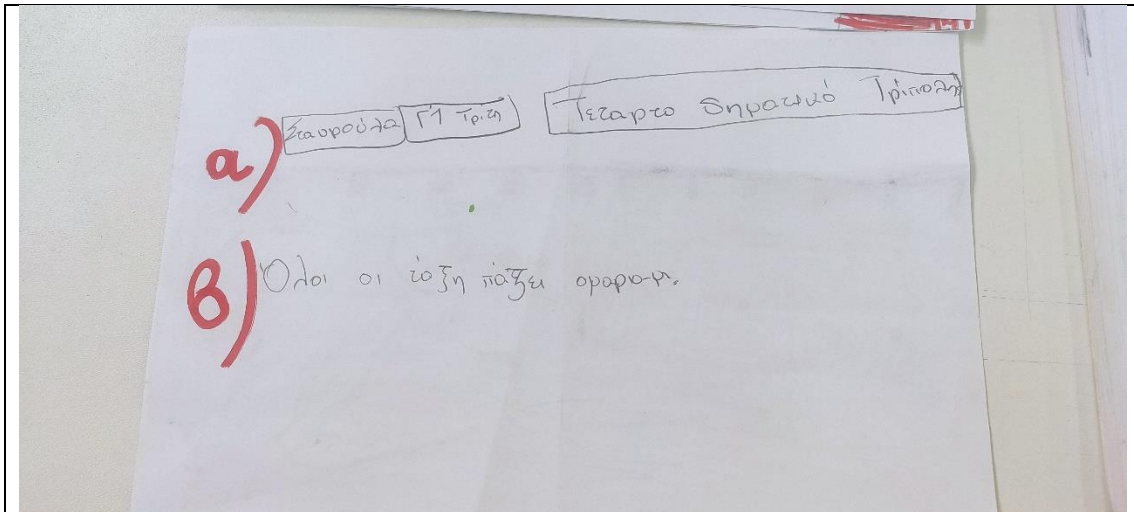 α) Σταυρούλα Γ1 Τρίτη Τέταρτο δηματικό Τρίπολη
β) Όλοι οι τόξη πάξει